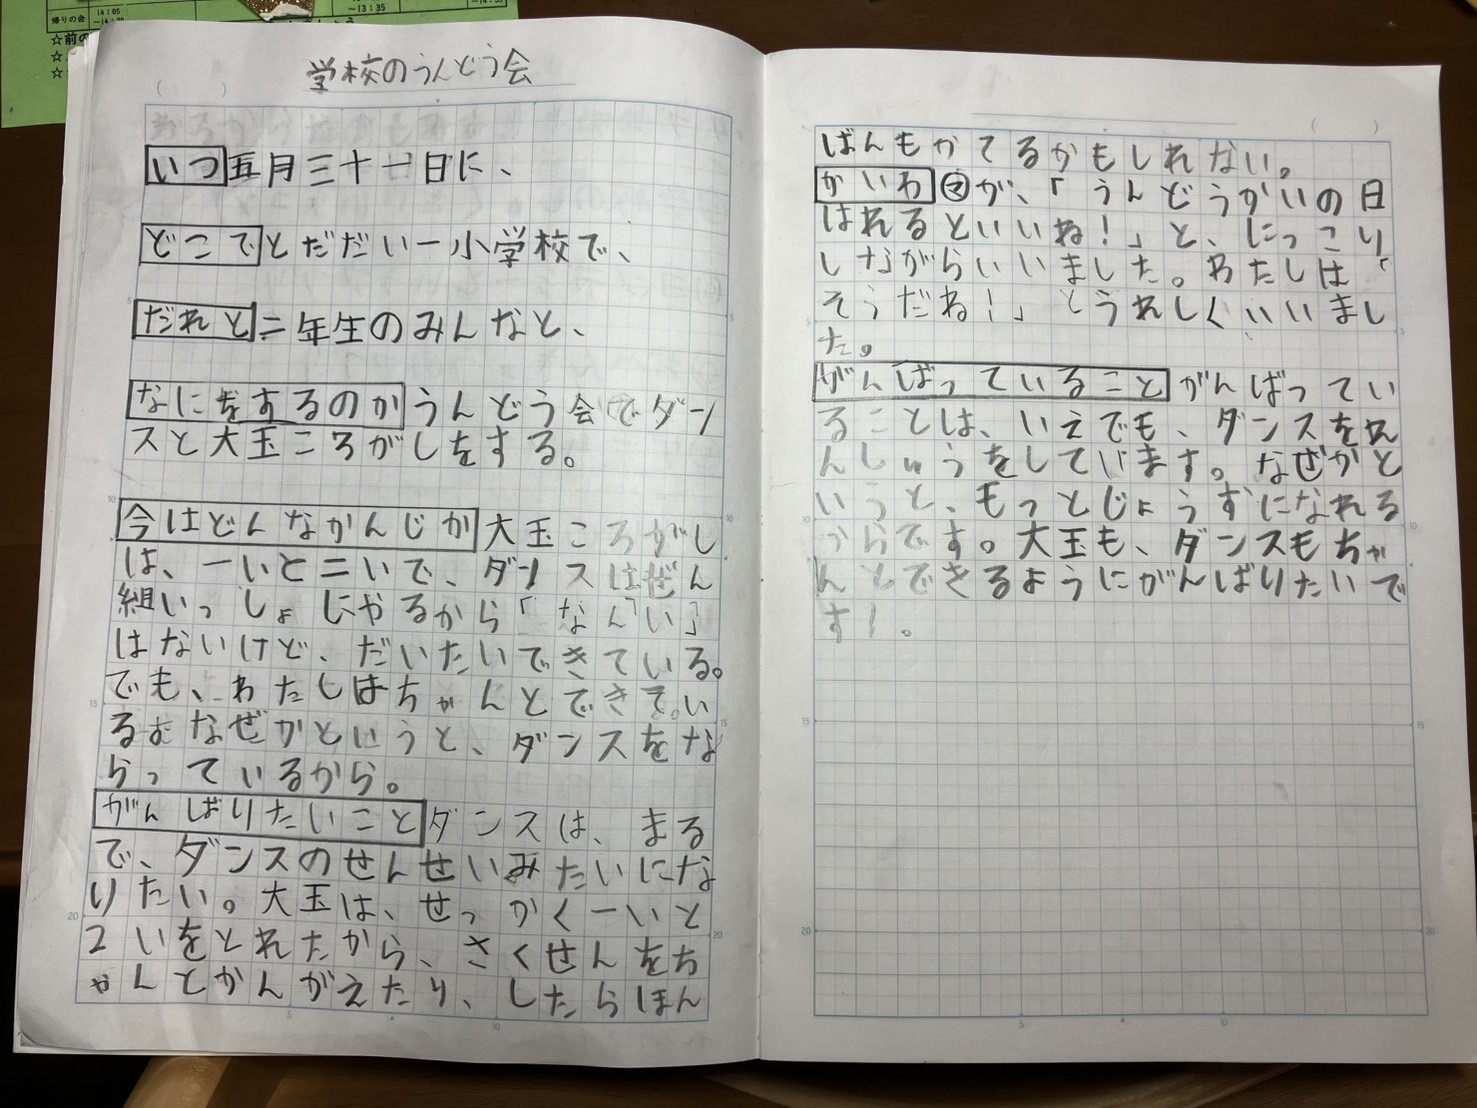 帰りの会
14:05
～13:35
☆前の
☆
☆
学校のうんどう会
いつ 五月三十一日に、
どこで とだだい一小学校で、
だれと 二年生のみんなと、
なにをするのか うんどう会でダン
スと大玉ころがしをする。
今はどんなかんじか 大玉ころがし
は、一いと二いで、ダンスはぜん
組いっしょにやるから「なんい」
はないけど、だいたいできている。
でも、わたしはちゃんとできてい
る。なぜかというと、ダンスをな
らっているから。
がんばりたいこと ダンスは、まる
で、ダンスのせんせいみたいにな
りたい。大玉は、せっかく一いと
2いをとれたから、さくせんをち
ゃんとかんがえたり、したらほん
ばんもかてるかもしれない。
かいわ マが、「うんどうかいの日
はれるといいね!」と、にっこり
しながらいいました。わたしは「
そうだね!」とうれしくいいまし
た。
がんばっていること がんばってい
ることは、いえでも、ダンスをれ
んしゅうをしています。なぜかと
いうと、もっとじょうずになれる
からです。大玉も、ダンスもちゃ
んとできるようにがんばりたいで
す!。